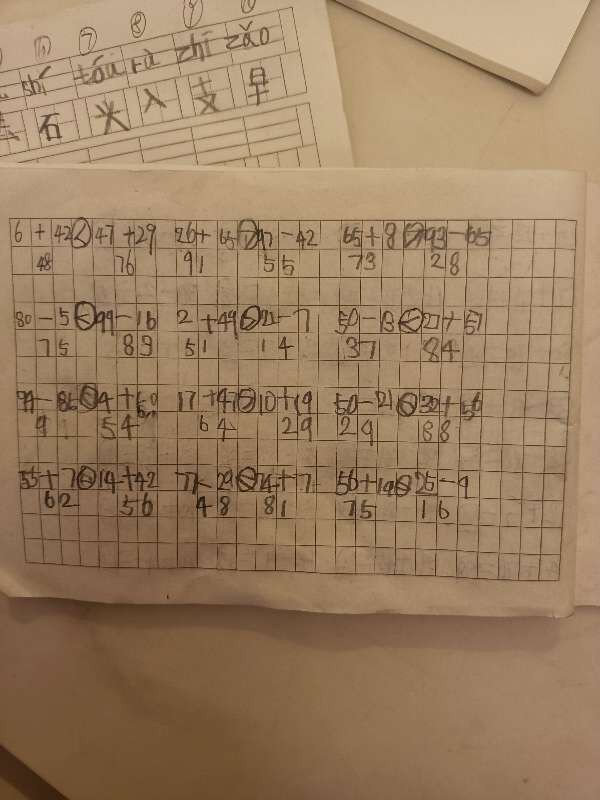 ⑦ ⑧ ⑨
shí tóu rù zhī zǎo
石 头 入 支 早
6+42<47+29 26+65>97-42 65+8>93-65
48 76 91 55 73 28
80-5<99-16 2+49>21-7 50-13<27+57
75 83 51 14 37 84
17+47>10+19
9 54 64 29 29 88
55+7>14+42 77-29<74+7 56+19>25-9
62 56 48 81 75 16